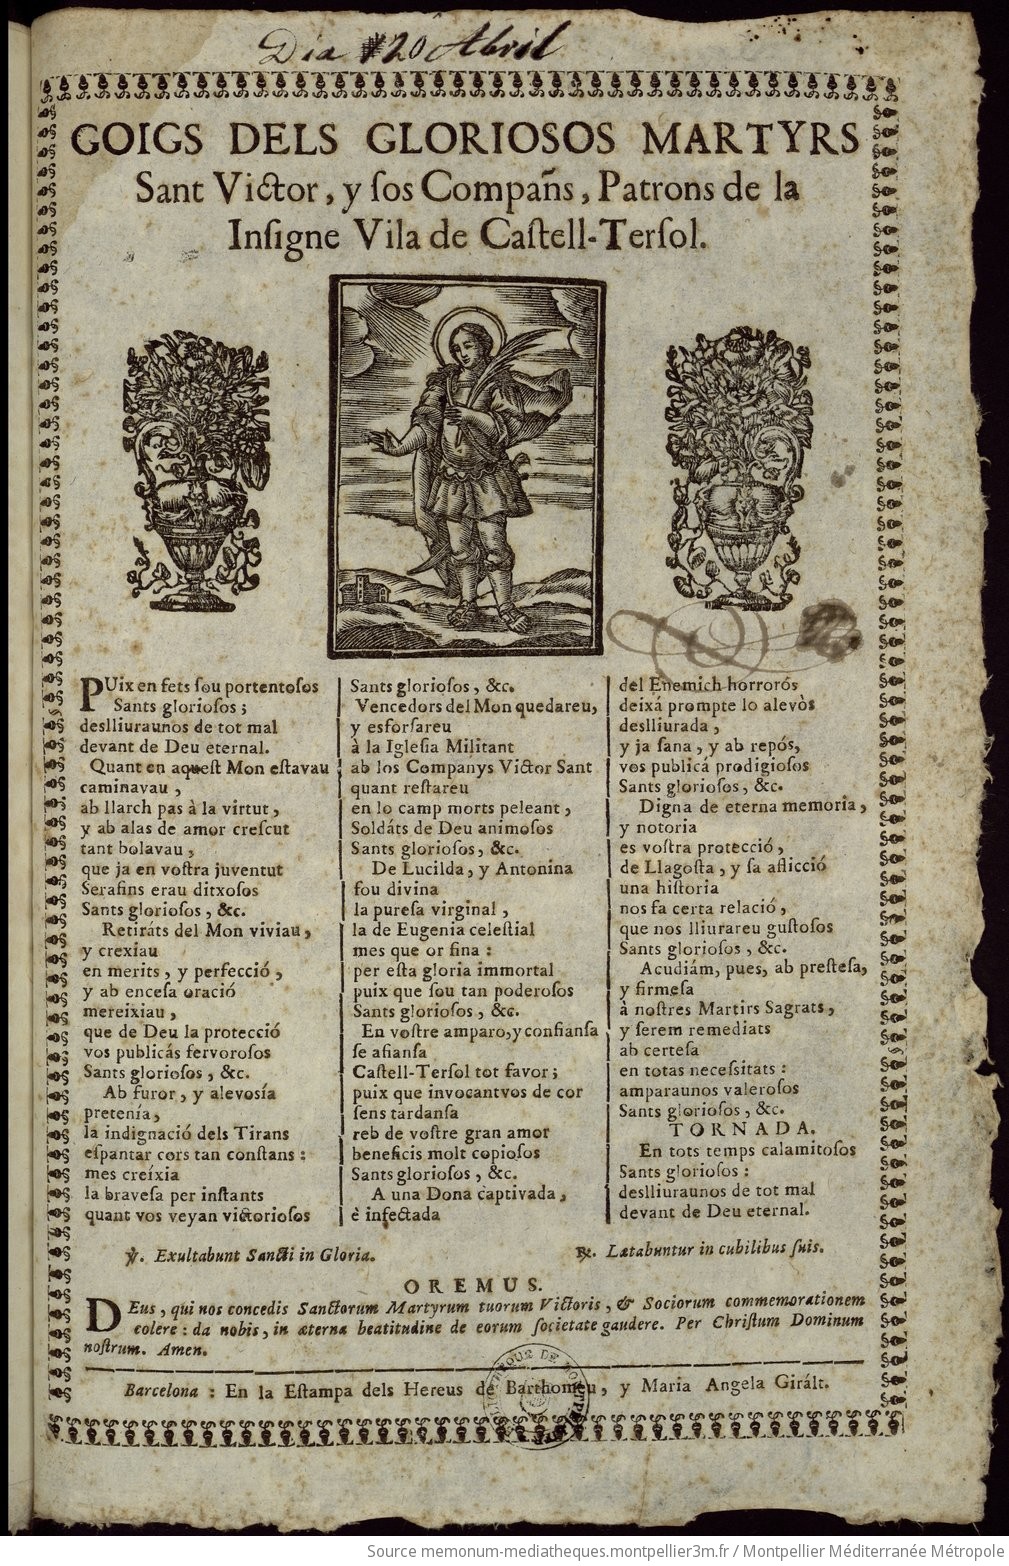 Dia 20 Abril
GOIGS DELS GLORIOSOS MARTYRS
Sant Victor, y ſos Compañs, Patrons de la
Inſigne Vila de Caſtell-Terſol.
PUix en fets ſou portentoſos
Sants glorioſos ;
deslliuraunos de tot mal
devant de Deu eternal.
Quant en aqueſt Mon eſtavau
caminavau ,
ab llarch pas à la virtut ,
y ab alas de amor creſcut
tant bolavau ,
que ja en voſtra juventut
Serafins erau ditxoſos
Sants glorioſos , &c.
Retiráts del Mon viviau ,
y crexiau
en merits , y perfecció ,
y ab enceſa oració
mereixiau ,
que de Deu la protecció
vos publicás fervoroſos
Sants glorioſos , &c.
Ab furor , y alevosía
pretenía ,
la indignació dels Tirans
eſpantar cors tan conſtans :
mes creíxia
la braveſa per inſtants
quant vos veyan victorioſos
Sants glorioſos , &c.
Vencedors del Mon quedareu,
y esforſareu
à la Igleſia Militant
ab los Companys Victor Sant
quant reſtareu
en lo camp morts peleant ,
Soldáts de Deu animoſos
Sants glorioſos , &c.
De Lucilda , y Antonina
fou divina
la pureſa virginal ,
la de Eugenia celeſtial
mes que or fina :
per eſta gloria immortal
puix que ſou tan poderoſos
Sants glorioſos , &c.
En voſtre amparo, y confianſa
ſe afianſa
Caſtell-Terſol tot favor ;
puix que invocantvos de cor
ſens tardanſa
reb de voſtre gran amor
beneficis molt copioſos
Sants glorioſos , &c.
A una Dona captivada ,
è infectada
del Enemich horrorós
deixá prompte lo alevòs
deslliurada ,
y ja ſana , y ab repós,
vos publicá prodigioſos
Sants glorioſos , &c.
Digna de eterna memoria ,
y notoria
es voſtra protecció ,
de Llagoſta , y ſa aflicció
una hiſtoria
nos fa certa relació ,
que nos lliurareu guſtoſos
Sants glorioſos , &c.
Acudiám, pues, ab preſteſa,
y firmeſa
à noſtres Martirs Sagrats ,
y ſerem remediats
ab certeſa
en totas neceſſitats :
amparaunos valeroſos
Sants glorioſos , &c.
TORNADA.
En tots temps calamitoſos
Sants glorioſos :
deslliuraunos de tot mal
devant de Deu eternal.
℣. Exultabunt Sancti in Gloria.
℟. Lætabuntur in cubilibus ſuis.
OREMUS.
DEus , qui nos concedis Sanctorum Martyrum tuorum Victoris , & Sociorum commemorationem
colere : da nobis , in æterna beatitudine de eorum ſocietate gaudere. Per Chriſtum Dominum
noſtrum. Amen.
Barcelona : En la Eſtampa dels Hereus de Barthomeu, y Maria Angela Girált.
Source memonum-mediatheques.montpellier3m.fr / Montpellier Méditerranée Métropole